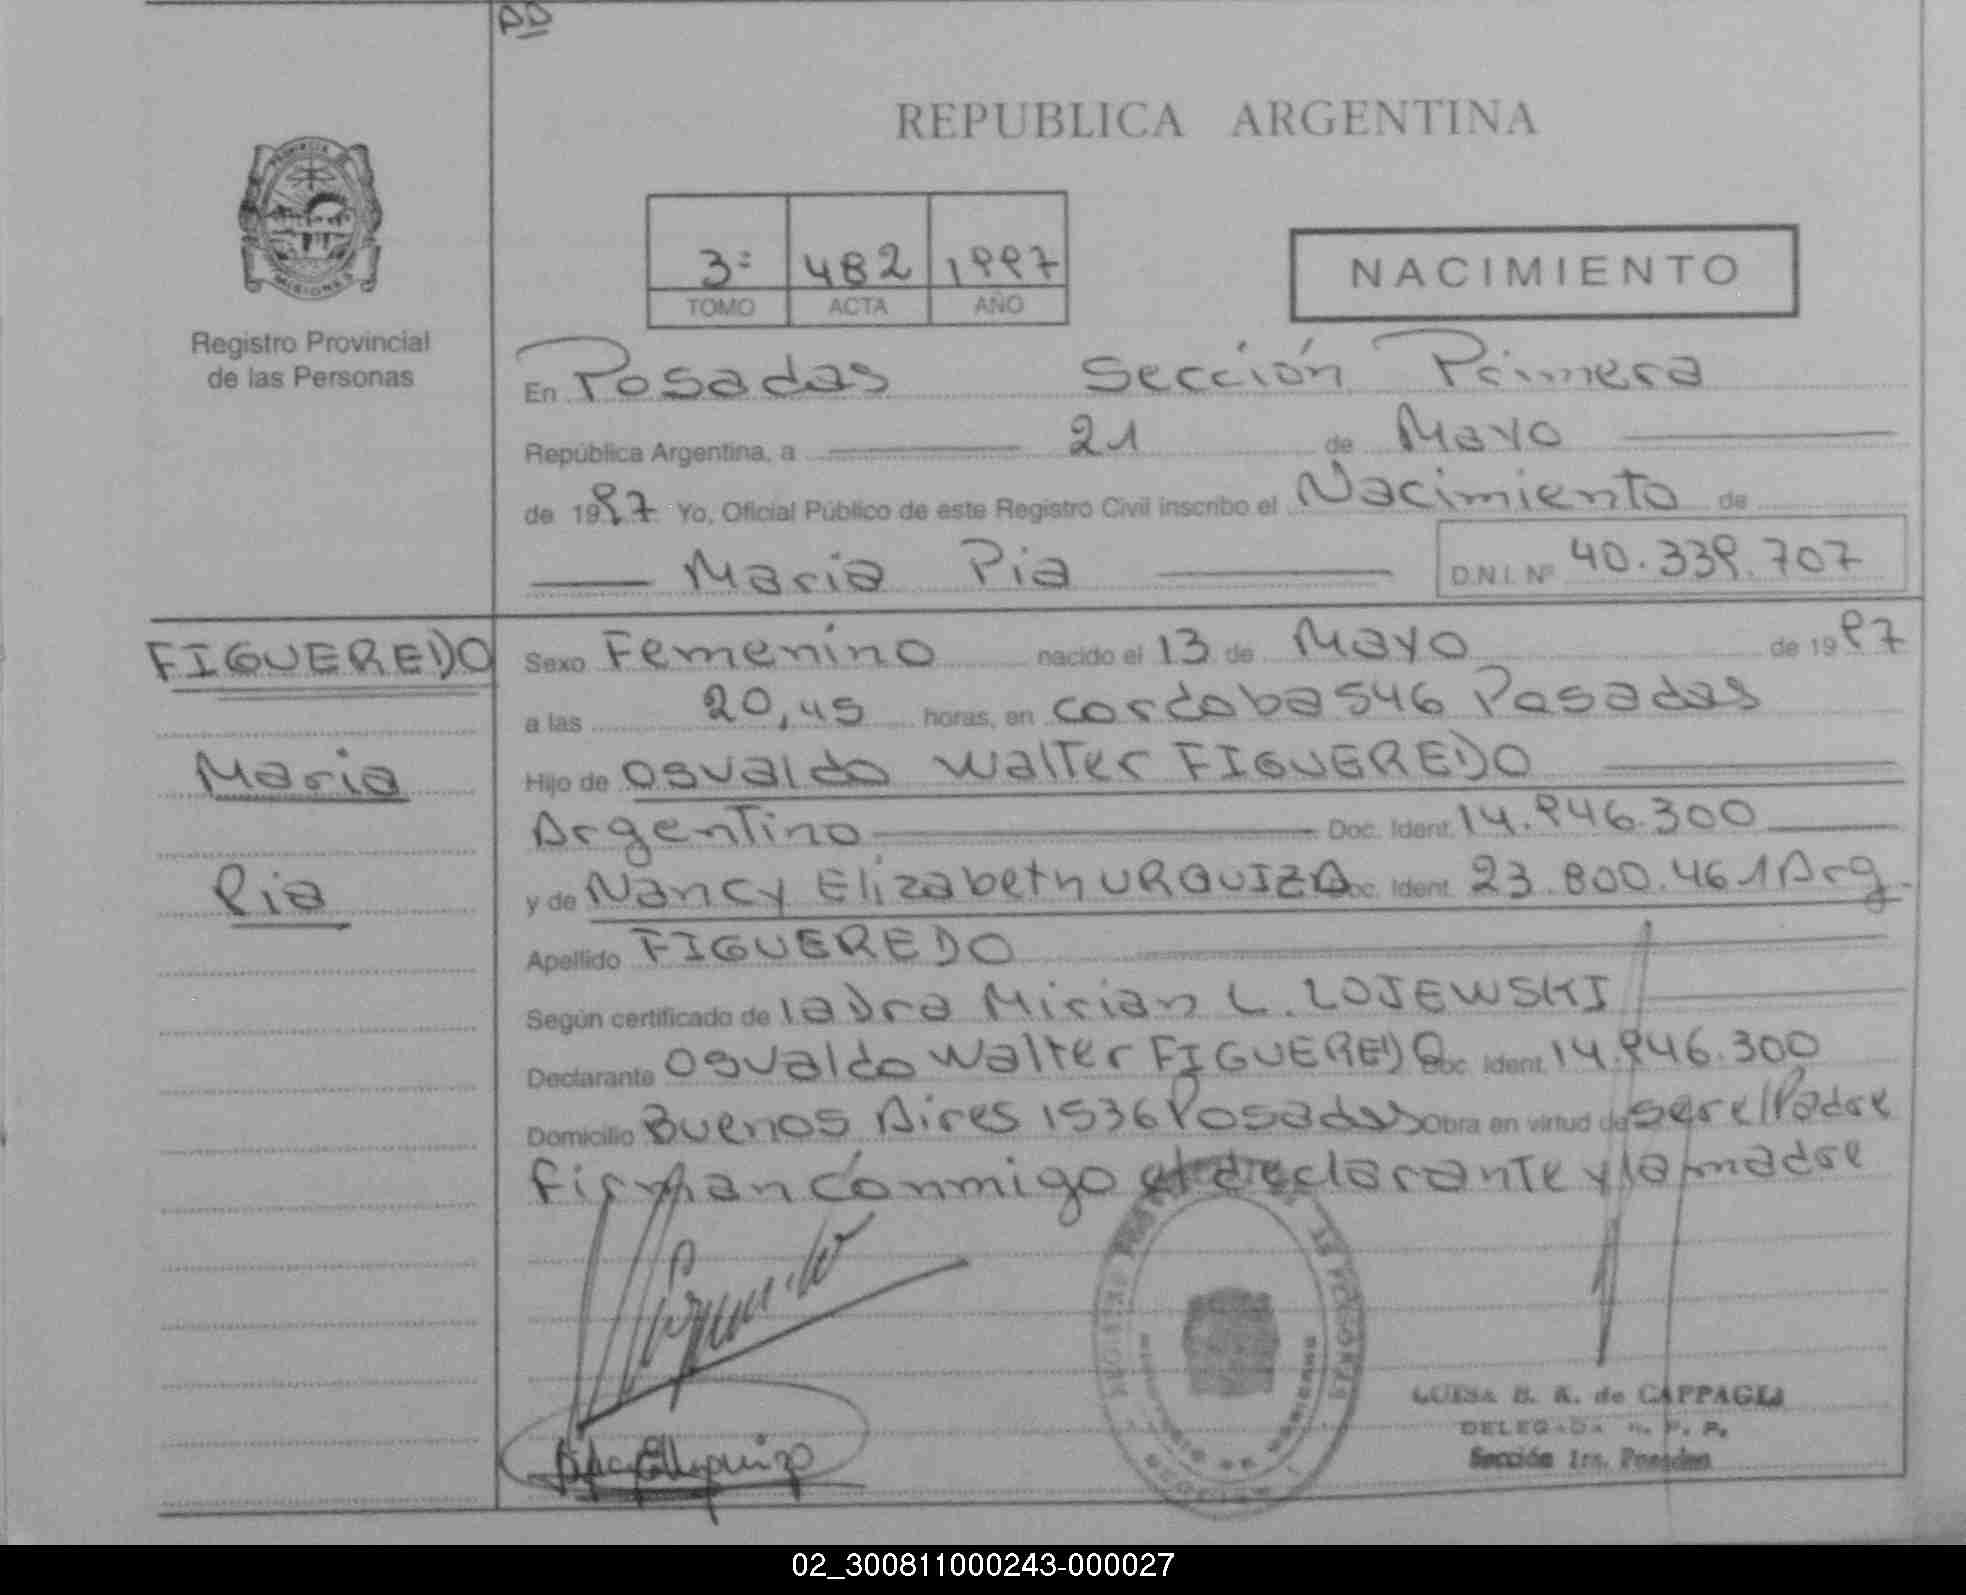 DD
REPUBLICA ARGENTINA
PROVINCIA
MISIONES
Registro Provincial
de las Personas
3º 482 1997
TOMO ACTA AÑO
NACIMIENTO
En Posadas Sección Primera
República Argentina, a 21 de Mayo
de 1997 Yo, Oficial Público de este Registro Civil inscribo el Nacimiento de
Maria Pia D.N.I. Nº 40.339.707
FIGUEREDO
Maria
Pia
Sexo Femenino nacido el 13 de Mayo de 1997
a las 20,45 horas, en cordoba 546 Posadas
Hijo de Osvaldo Walter FIGUEREDO
Argentino Doc. Ident. 14.946.300
y de Nancy Elizabeth URQUIZA Doc. Ident. 23.800.461 Arg.
Apellido FIGUEREDO
Según certificado de la Dra Mirian L. LOJEWSKI
Declarante Osvaldo Walter FIGUEREDO Doc. Ident. 14.946.300
Domicilio Buenos Aires 1536 Posadas Obra en virtud de ser el Padre
firman conmigo el declarante y la madre
LUISA B. K. de CAPPAGLI
DELEGADA R. P. P.
Sección 1ra. Posadas
02_300811000243-000027